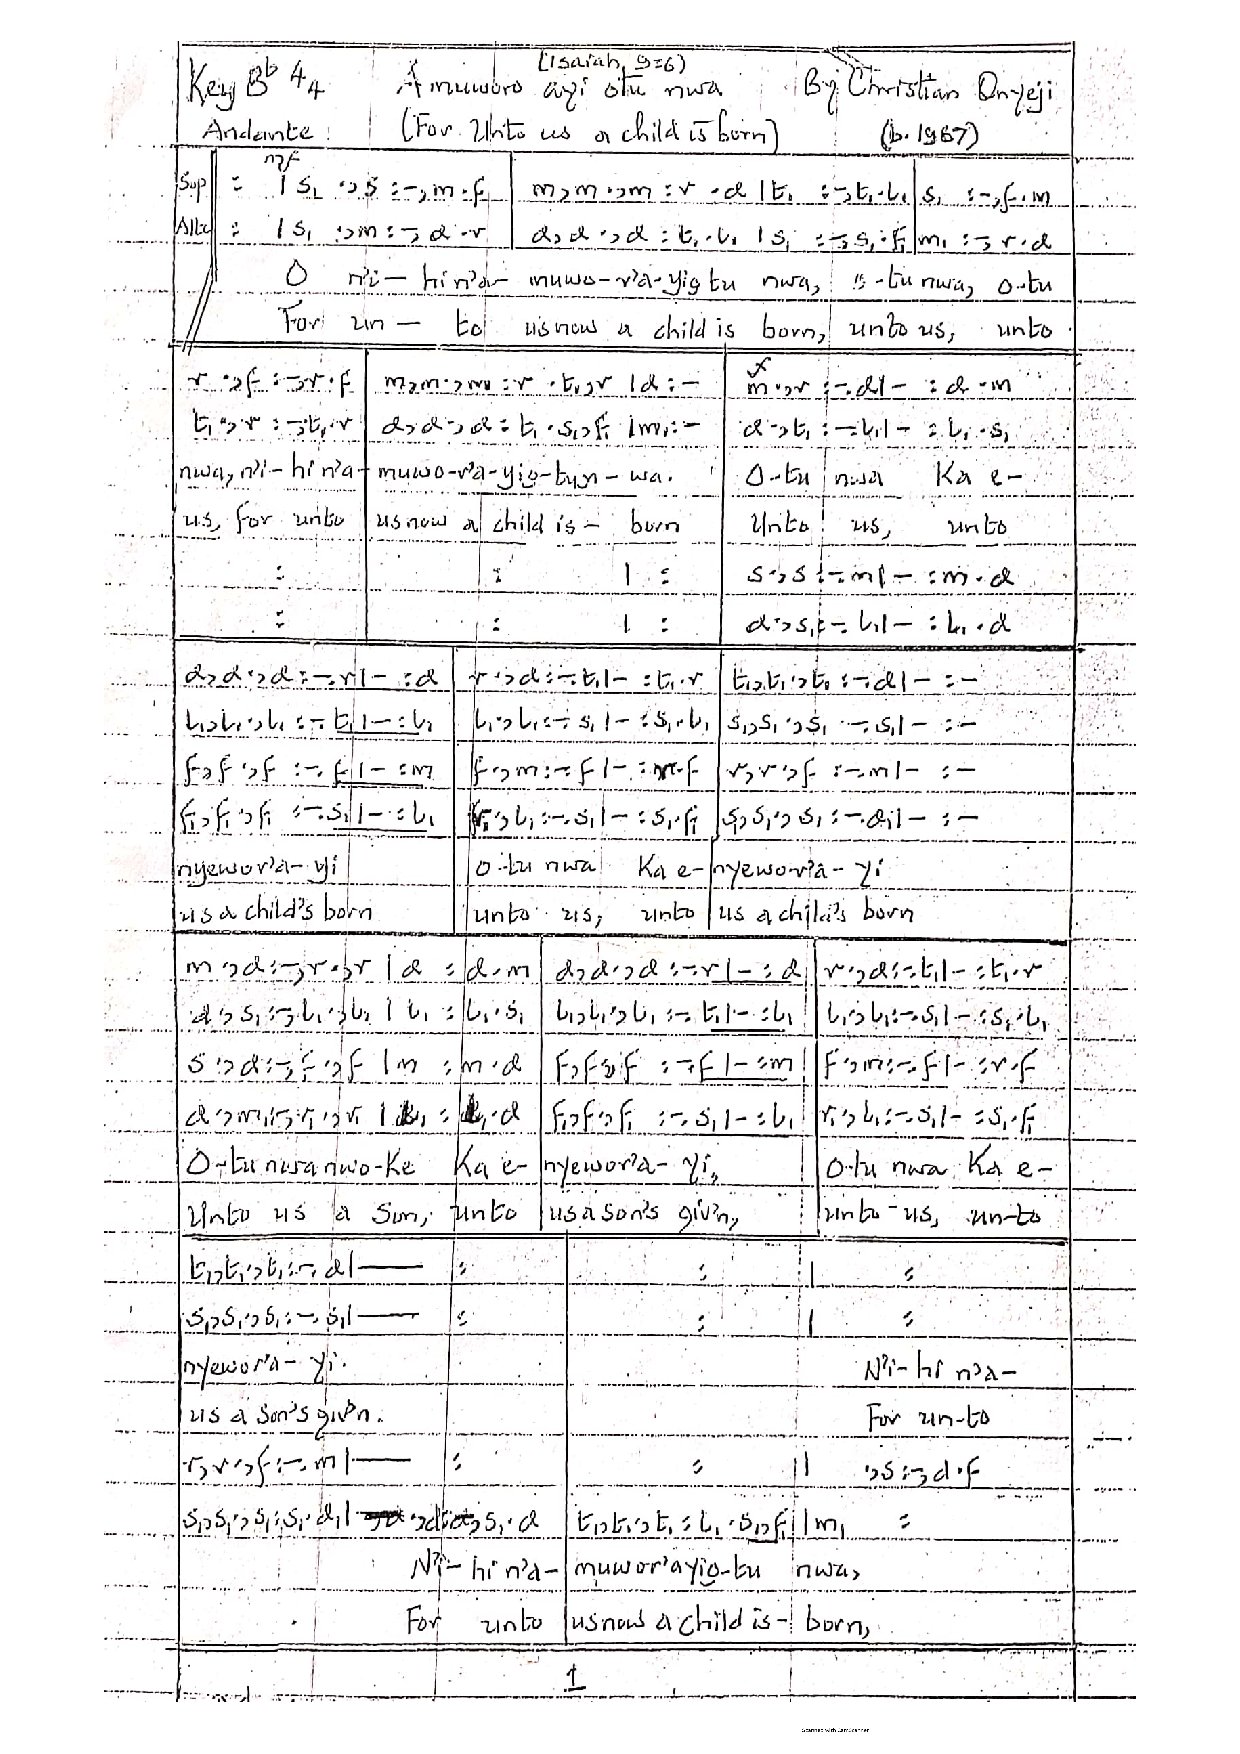 (Isaiah 9:6)
Key Bb 4/4 Amuworo ayi otu nwa By Christian Onyeji
Andante (For Unto us a child is born) (b. 1967)
mf
Sop : | s₁ .,s :-,m.f | m,m.,m :r .d | t₁ :-,t₁.l₁ | s₁ :-,f.m
Alto : | s₁ .,m :-,d.r | d,d.,d :t₁.l₁ | s₁ :-,s₁.f₁ | m₁ :-,r.d
O n'i- hi n'a- muwo-r'a-yio tu nwa, o-tu nwa, o-tu
For un- to us now a child is born, unto us, unto
f
r .,f :-,r.f | m,m.,m :r .t₁,r | d :- | m.,r :-.d | - :d.m
t₁.,r :-,t₁.r | d,d.,d :t₁.s₁,f₁ | m₁:- | d.,t₁ :-.l₁ | - :l₁.s₁
nwa, n'i-hi n'a- muwo-r'a-yio-tun-wa. O-tu nwa Ka e-
us, for unto us now a child is- born Unto us, unto
: : | : s.,s :-.m | - :m.d
: : | : d.,s₁ :-.l₁ | - :l₁.d
d,d.,d :-.r | - :d | r.,d :-.t₁ | - :t₁.r | t₁,t₁.,t₁ :-.d | - :-
l₁,l₁.,l₁ :-.t₁ | - :l₁ | l₁.,l₁ :-.s₁ | - :s₁.l₁ | s₁,s₁.,s₁ :-.s₁ | - :-
f,f.,f :-.f | - :m | f.,m :-.f | - :m.f | r,r.,f :-.m | - :-
f₁,f₁.,f₁ :-.s₁ | - :l₁ | r₁.,l₁ :-.s₁ | - :s₁.f₁ | s₁,s₁.,s₁ :-.d₁ | - :-
nyewor'a- yi o-tu nwa Ka e- nyewo-r'a- yi
us a child's born unto us, unto us a child's born
m.,d :-,r.,r | d :d.m | d,d.,d :-.r | - :d | r.,d :-.t₁ | - :t₁.r
d.,s₁ :-,l₁.,l₁ | l₁ :l₁.s₁ | l₁,l₁.,l₁ :-.t₁ | - :l₁ | l₁.,l₁ :-.s₁ | - :s₁.l₁
s.,d :-,f.,f | m :m.d | f,f.,f :-.f | - :m | f.,m :-.f | - :r.f
d.,m₁ :-,r₁.,r₁ | l₁ :l₁.d | f₁,f₁.,f₁ :-.s₁ | - :l₁ | r₁.,l₁ :-.s₁ | - :s₁.f₁
O-tu nwa nwo-Ke Ka e- nyewor'a- yi, O-tu nwa Ka e-
Unto us a Son, unto us a son's giv'n, unto us, un-to
t₁,t₁.,t₁ :-.d | — : | : | :
s₁,s₁.,s₁ :-.s₁ | — : | : | :
nyewor'a- yi. N'i-hi n'a-
us a son's giv'n. For un-to
r,r.,f :-.m | — : | : || .,s :-,d.f
s₁,s₁.,s₁ :s₁.d₁ | .,d :d,s₁.d | t₁,t₁.,t₁ :l₁.s₁,f₁ | m₁ :
N'i- hi n'a- muwor'ayio-tu nwa,
For unto us now a child is- born,
1
Scanned with CamScanner